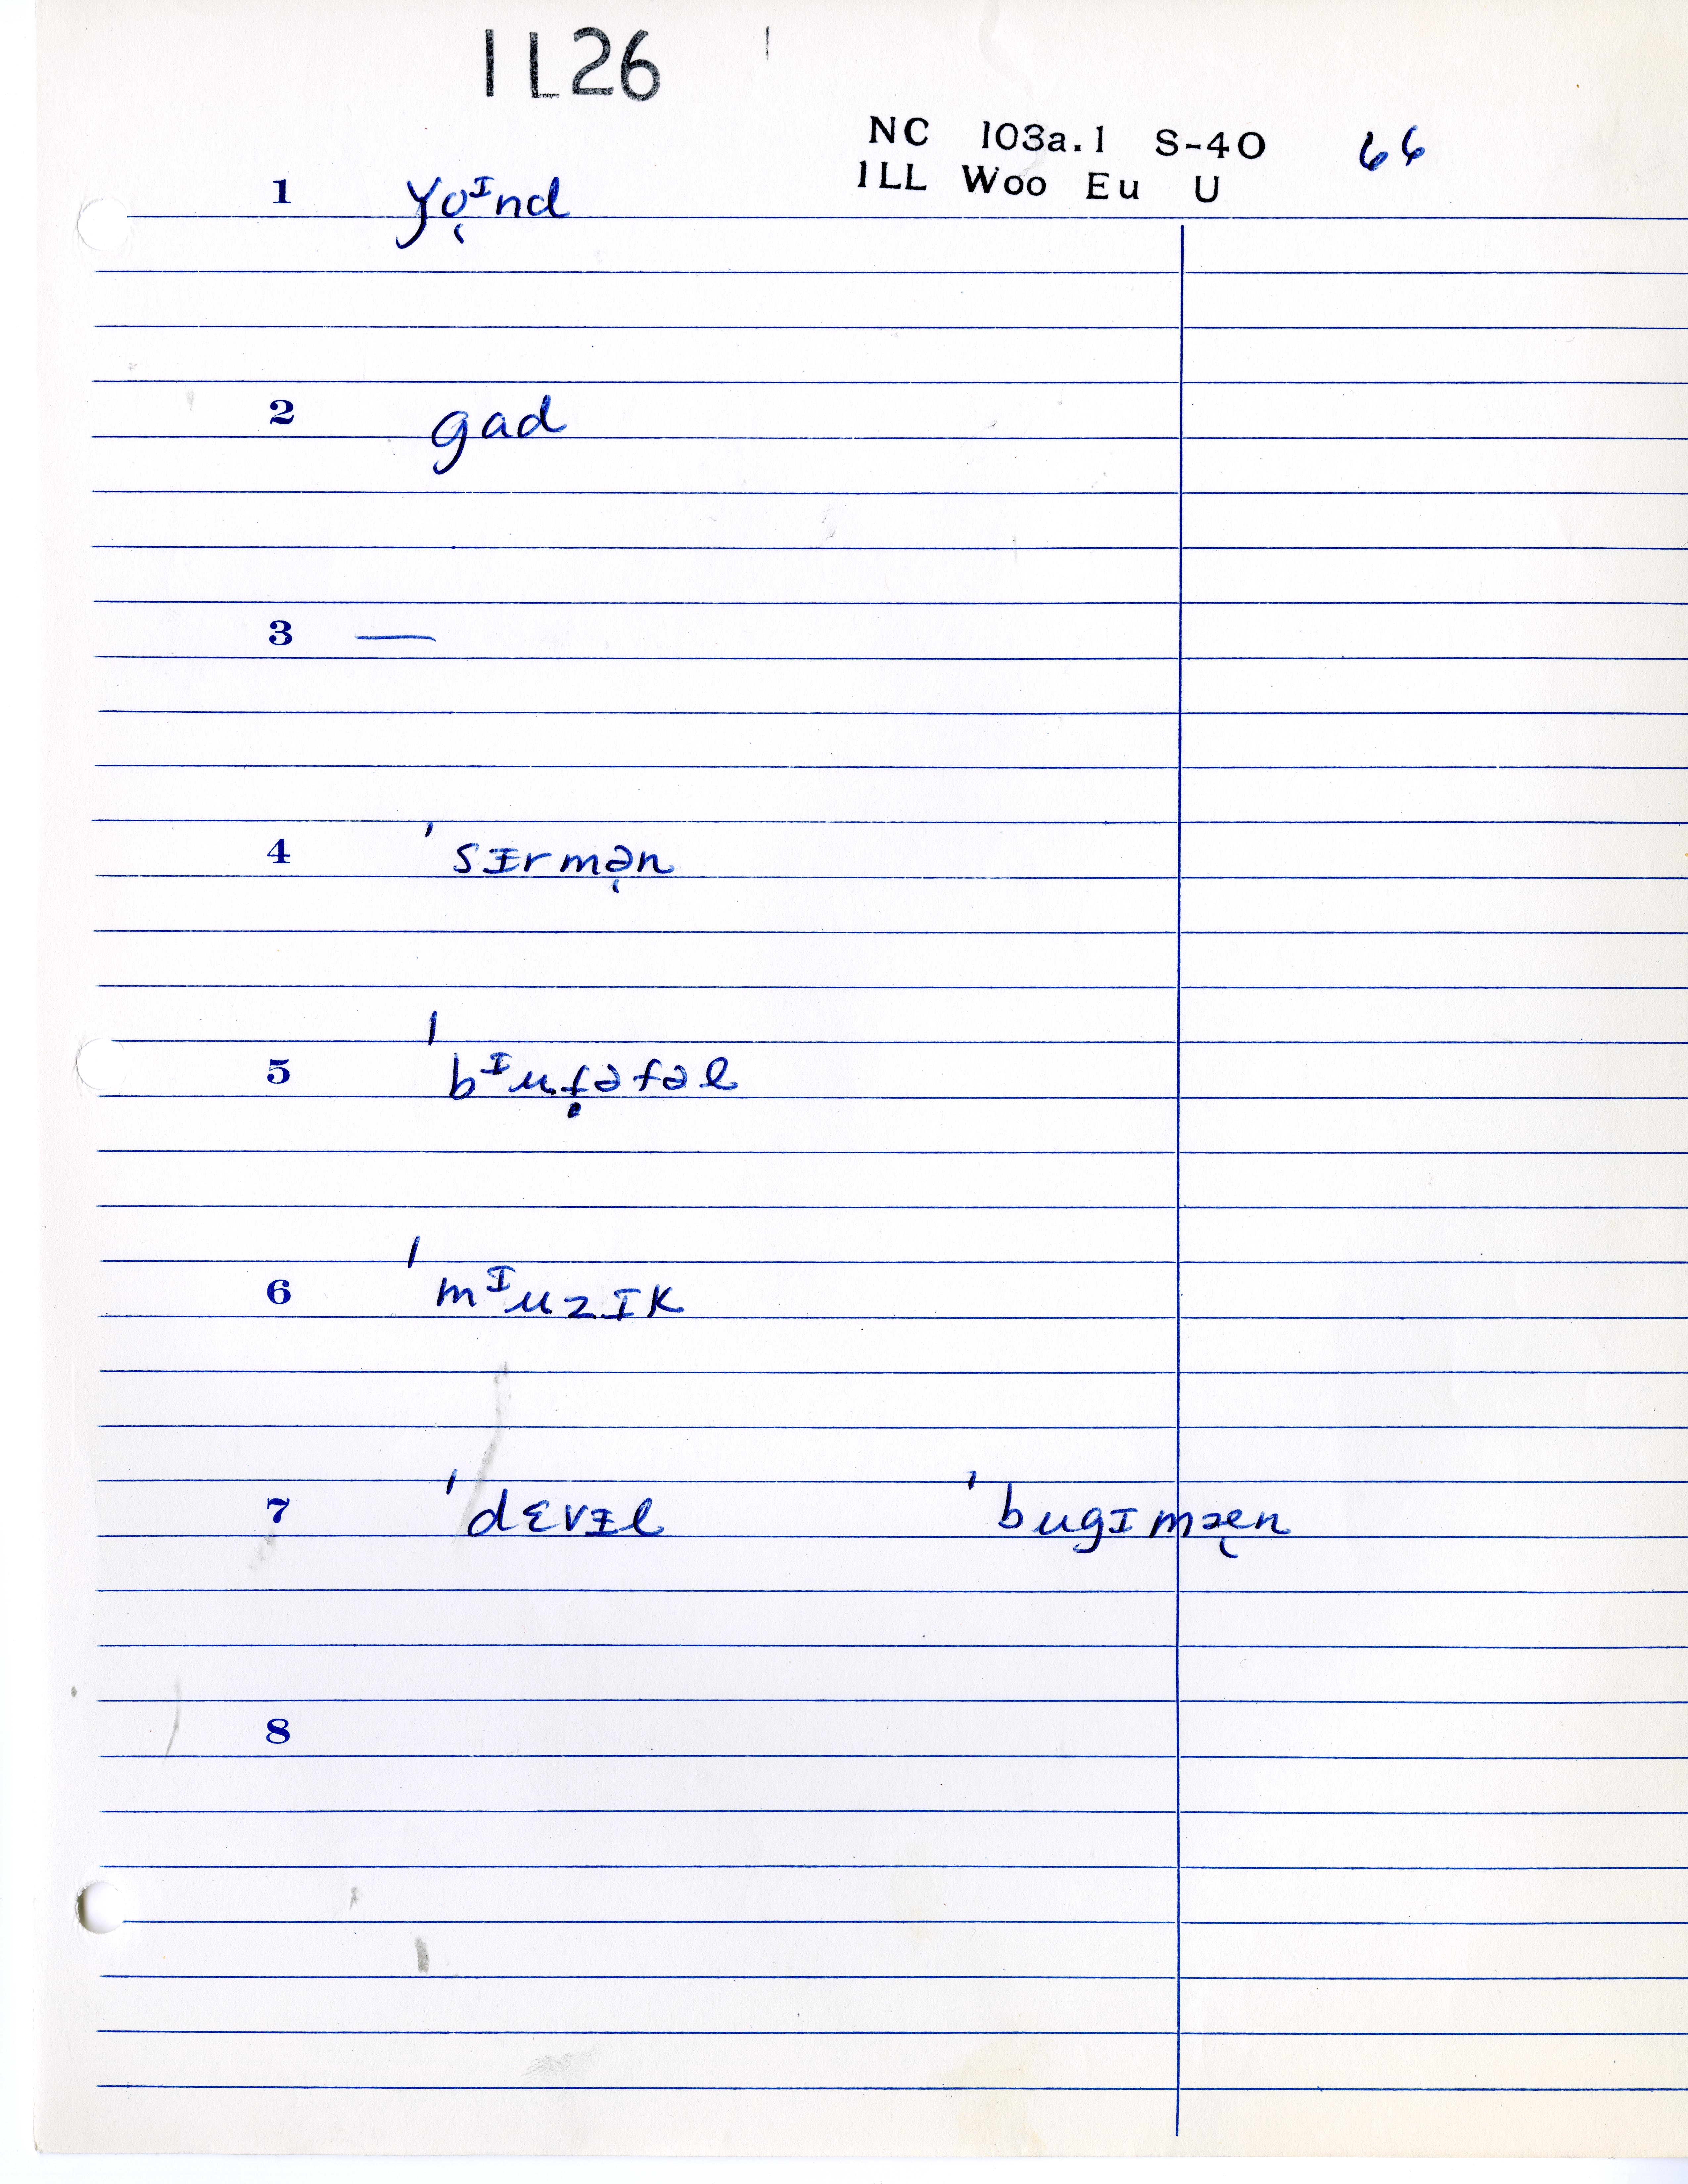 IL26
NC 103a.1 S-40 66
ILL Woo Eu U
1 yo̜ᶦnd
2 gad
3 —
4 ˈsɨrmə̜n
5 ˈbᶦuf̣əfəl
6 ˈmᶦuzɪk
7 ˈdɛvɨl ˈbugɪmæ̜n
8